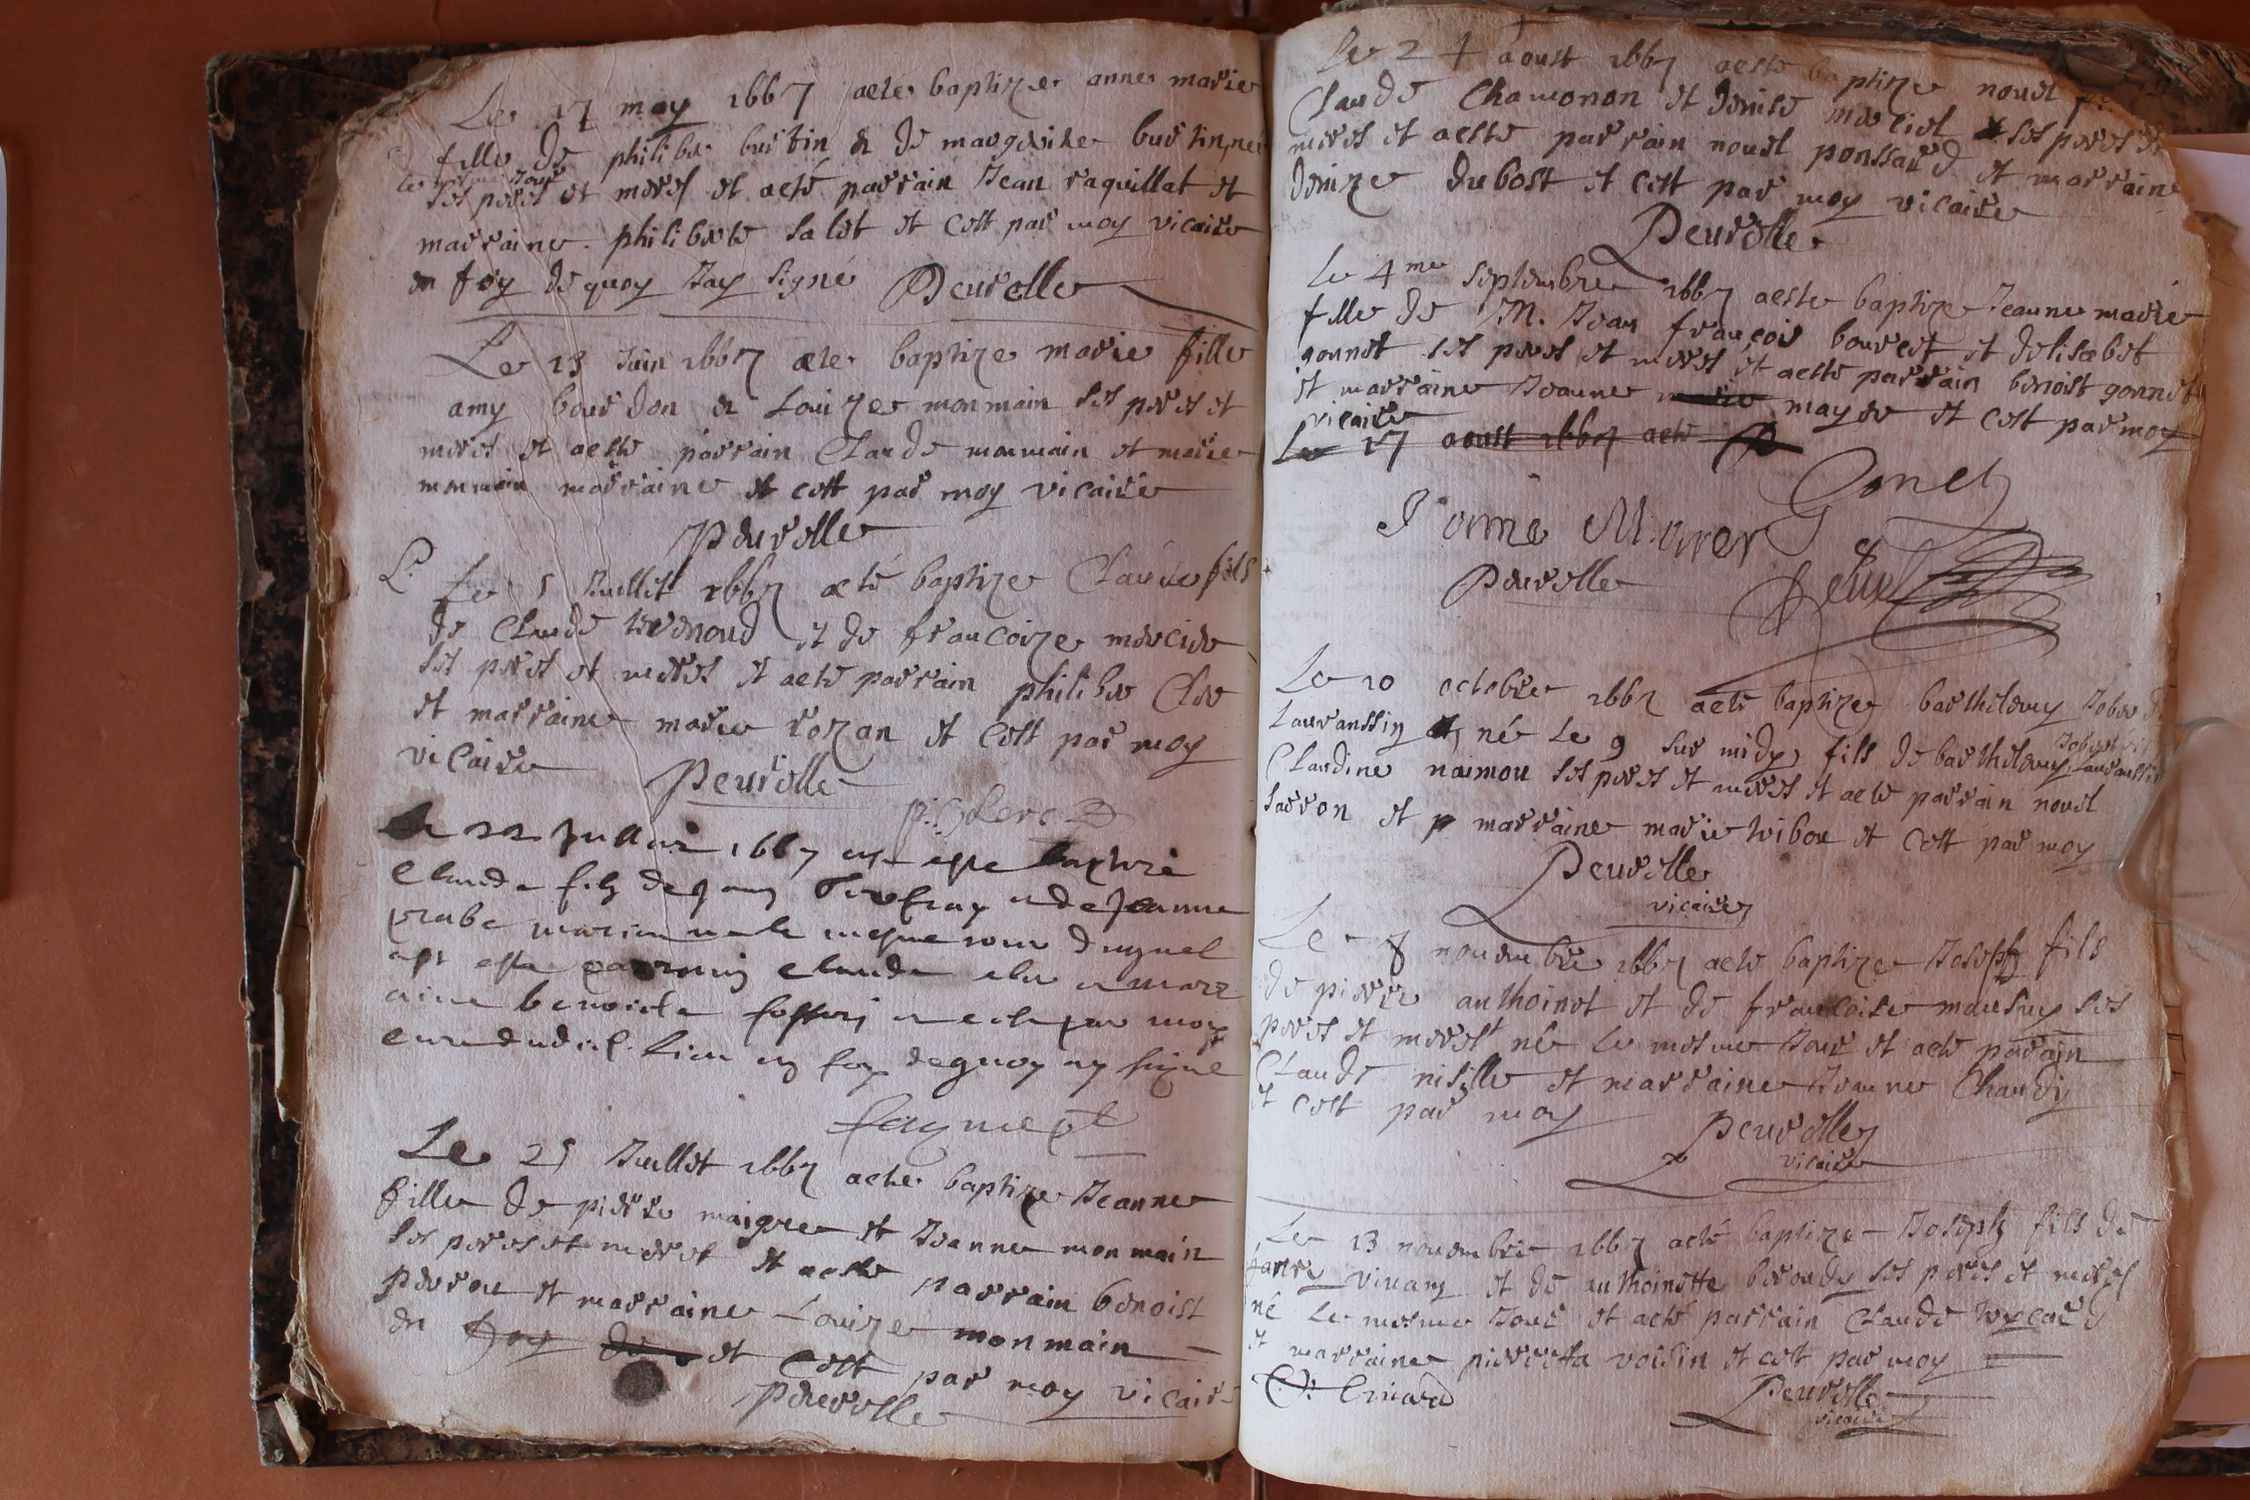 Le 17 may 1667 aeté baptize anne marie
fille de philiber burtin et de margerite burtin, née
le mesme Jour
ses peres et meres et aeté parrain Jean raquillat et
marraine philiberte salet et cest par moy vicaire
en foy de quoy Jay signé Peurelle
Le 13 Juin 1667 aeté baptize marie fille
amy bourdon et Louize monmain ses peres et
meres et aeste parrain Claude monmain et marie
monmain marraine et cest par moy vicaire
Peurelle
Le 5 Juillet 1667 aeté baptize Claude fils
de Claude et de francoize mercier
ses peres et meres et aeté parrain philiber Cler
et marraine marie rozan et cest par moy
vicaire Peurelle
p. Clerc
Le 22 Juillet 1667 est esté baptizé
Claude filz de Jean et de Jeanne
le mesme iour duquel
est esté parrain Claude et marr
aine benoiste et ce par moy
curé dudict lieu en foy de quoy ay signé
Le 25 Juillet 1667 aeté baptize Jeanne
fille de pierre maigre et Jeanne monmain
ses peres et meres et aeste parrain benoist
perrou et marraine Louize monmain
en foy de et cest par moy vicaire
Peurelle
Le 24 aoust 1667 aesté baptize nouel
Claude Chamonon et denise merciel ses peres et
meres et aesté parrain nouel ponssard et marraine
denize dubost et cest par moy vicaire
Peurelle
Le 4me septembre 1667 aeste baptize Jeanne marie
fille de M. Jean françois bourcet et delisabet
gonnet ses peres et meres et aesté parrain benoist gonnet
et marraine Jeanne mayer et cest par moy
vicaire
Le 17 aoust 1667 aeté
Gonet
Peurelle
Le 10 octobre 1667 aeté baptize barthelemy Jober
Lauranssin né le 9 sur midy fils de barthelemy
Claudine naimou ses peres et meres et aeté parrain nouel
sarron et p marraine marie tribou et cest par moy
Peurelle
vicaire
Le 8 nouembre 1667 aeté baptize Joseph fils
de pierre anthoinet et de francoise ses
peres et meres né le mesme Jour et aeté parain
Claude nisille et marraine Jeanne Chandy
et cest par moy
Peurelle
vicaire
Le 13 nouembre 1667 aeté baptize Joseph fils de
vivant et de anthoinette beroude ses peres et meres
né le mesme Jour et aeté parrain Claude
et marraine pierretta voisin et cest par moy
Peurelle
vicaire